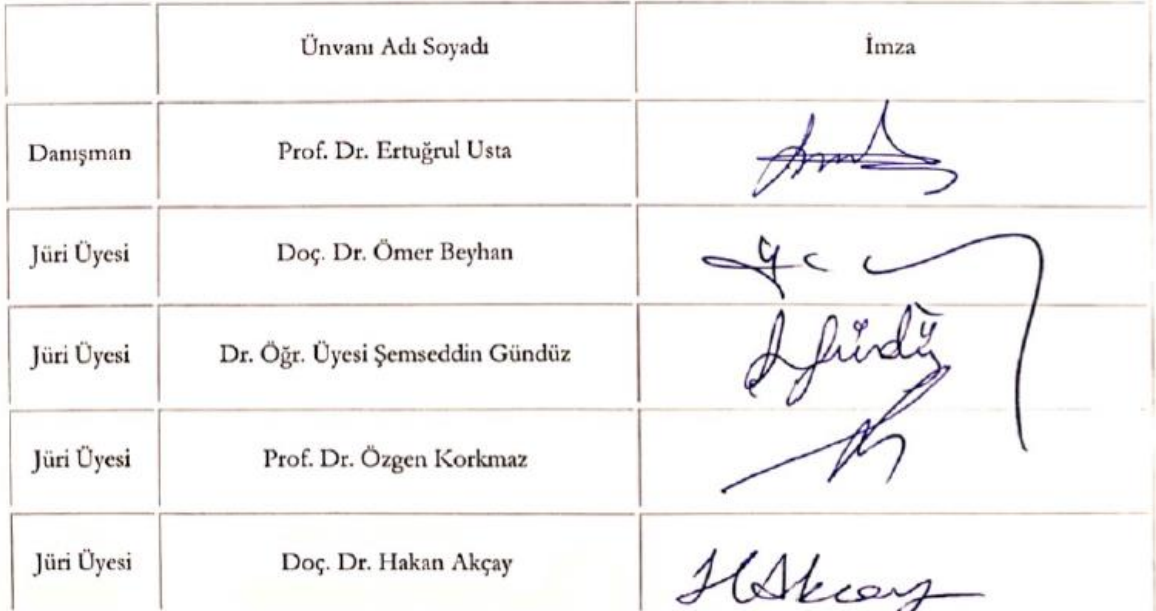 Ünvanı Adı Soyadı İmza
Danışman Prof. Dr. Ertuğrul Usta
Jüri Üyesi Doç. Dr. Ömer Beyhan
Jüri Üyesi Dr. Öğr. Üyesi Şemseddin Gündüz
Jüri Üyesi Prof. Dr. Özgen Korkmaz
Jüri Üyesi Doç. Dr. Hakan Akçay HAkçay